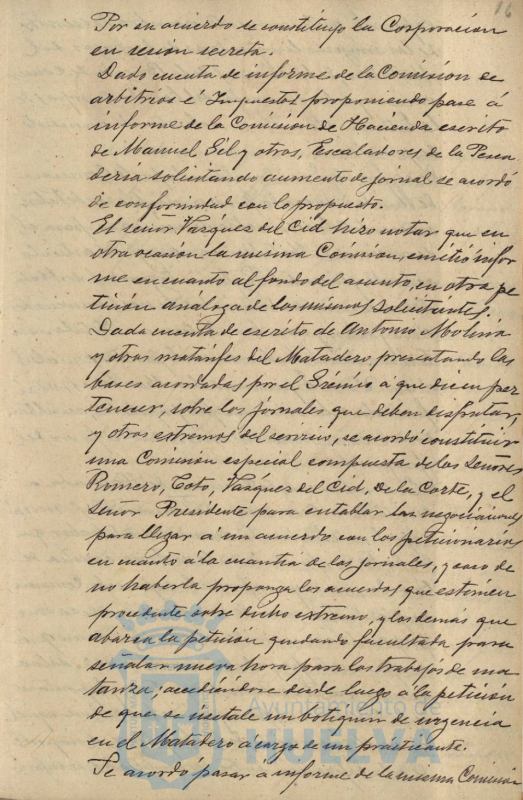 16
Por su acuerdo se constituyo la Corporacion
en sesión secreta.
Dado cuenta de informe de la Comision de
arbitrios é Impuestos proponiendo pase á
informe de la Comision de Hacienda escrito
de Manuel Gil y otros, Escaladores de la Pesca
deria solicitando aumento de jornal se acordó
de conformidad con lo propuesto.
El señor Vazquez del Cid hizo notar que en
otra ocasión la misma Comision, emitió infor
me en cuanto al fondo del asunto, en otra pe
tición analoga de los mismos solicitantes.
Dada cuenta de escrito de Antonio Molina
y otros matarifes del Matadero presentando las
bases acordadas por el Grémio á que dicen per
tenecer, sobre los jornales que deben disfrutar,
y otros extremos del servicio, se acordó constituir
una Comision especial compuesta de los Señores
Romero, Coto, Vazquez del Cid, De la Corte, y el
señor Presidente para entablar las negociaciones
para llegar á un acuerdo con los peticionarios
en cuanto á la cuantia de los jornales, y caso de
no haberla proponga los acuerdos que estimen
procedente sobre dicho extremo, y los demás que
abarca la petición quedando facultada para
señalar nueva hora para los trabajos de ma
tanza; accediendose desde luego á la petición
de que se instale un botiquin de urgencia
en el Matadero á cargo de un practicante.
Se acordó pasar á informe de la misma Comision
Ayuntamiento de
HUELVA